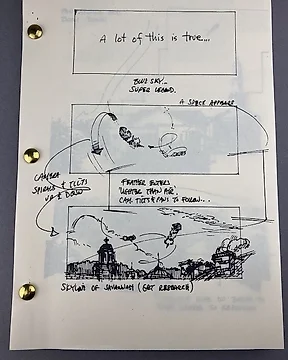 A lot of this is true...
BLUE SKY...
SUPER LEGEND.
A SPECK APPEARS
CAMERA
SPIRALS & TILTS
UP & DOWN
FEATHER ENTERS
'LIGHTER THAN AIR'
CAM TILTS & PANS TO FOLLOW...
SKYLINE OF SAVANNAH (GET RESEARCH)